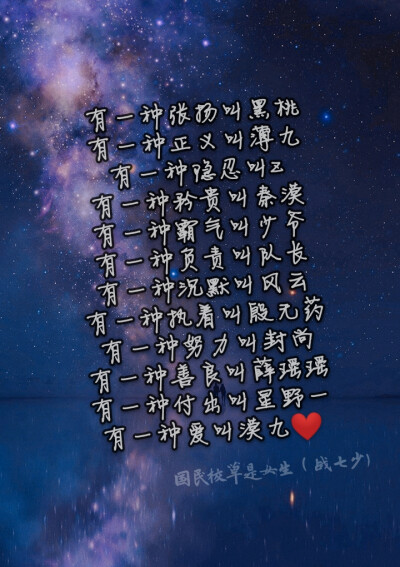 有一种张扬叫黑桃
有一种正义叫薄九
有一种隐忍叫Z
有一种矜贵叫秦漠
有一种霸气叫少爷
有一种负责叫队长
有一种沉默叫风云
有一种执着叫殷无药
有一种努力叫封尚
有一种善良叫薛瑶瑶
有一种付出叫星野一
有一种爱叫漠九❤️
国民校草是女生（战七少）